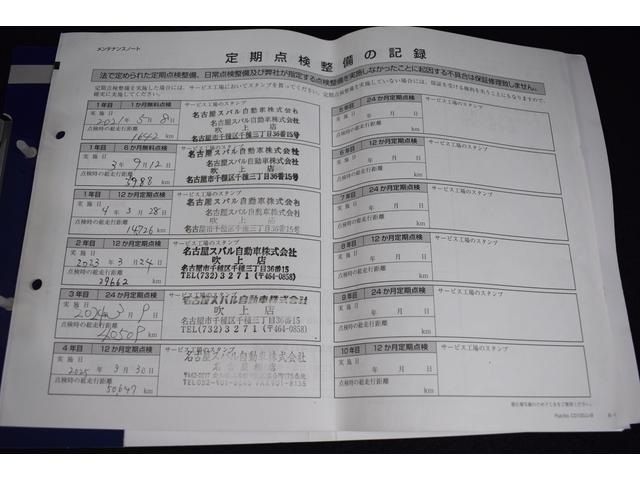 メンテナンスノート
定期点検整備の記録
法で定められた定期点検整備、日常点検整備及び弊社が指定する点検整備を実施しなかったことに起因する不具合は保証修理致しません。
1年目 1か月無料点検 サービス工場のスタンプ
実施日 2021年5月8日
点検時の総走行距離
1642 km
名古屋スバル自動車株式会社
吹上店
名古屋市千種区千種三丁目36番15号
1年目 6か月無料点検 サービス工場のスタンプ
実施日 3年9月12日
点検時の総走行距離
3988 km
名古屋スバル自動車株式会社
吹上店
名古屋市千種区千種三丁目36番15号
1年目 12か月定期点検 サービス工場のスタンプ
実施日 4年3月28日
点検時の総走行距離
14726 km
名古屋スバル自動車株式会社
吹上店
名古屋市千種区千種三丁目36番15号
2年目 12か月定期点検 サービス工場のスタンプ
実施日 2023年3月24日
点検時の総走行距離
29662 km
名古屋スバル自動車株式会社
吹上店
名古屋市千種区千種三丁目36番15
TEL(732)3271(〒464-0858)
3年目 24か月定期点検 サービス工場のスタンプ
実施日 2024年3月9日
点検時の総走行距離
40509 km
名古屋スバル自動車株式会社
吹上店
名古屋市千種区千種三丁目36番15
TEL(732)3271(〒464-0858)
4年目 12か月定期点検 サービス工場のスタンプ
実施日 2025年3月30日
点検時の総走行距離
50647 km
名古屋スバル自動車株式会社
5年目 24か月定期点検 サービス工場のスタンプ
実施日 年 月 日
点検時の総走行距離
km
6年目 12か月定期点検 サービス工場のスタンプ
実施日 年 月 日
点検時の総走行距離
km
7年目 24か月定期点検 サービス工場のスタンプ
実施日 年 月 日
点検時の総走行距離
km
8年目 12か月定期点検 サービス工場のスタンプ
実施日 年 月 日
点検時の総走行距離
km
9年目 24か月定期点検 サービス工場のスタンプ
実施日 年 月 日
点検時の総走行距離
km
10年目 12か月定期点検 サービス工場のスタンプ
実施日 年 月 日
点検時の総走行距離
km